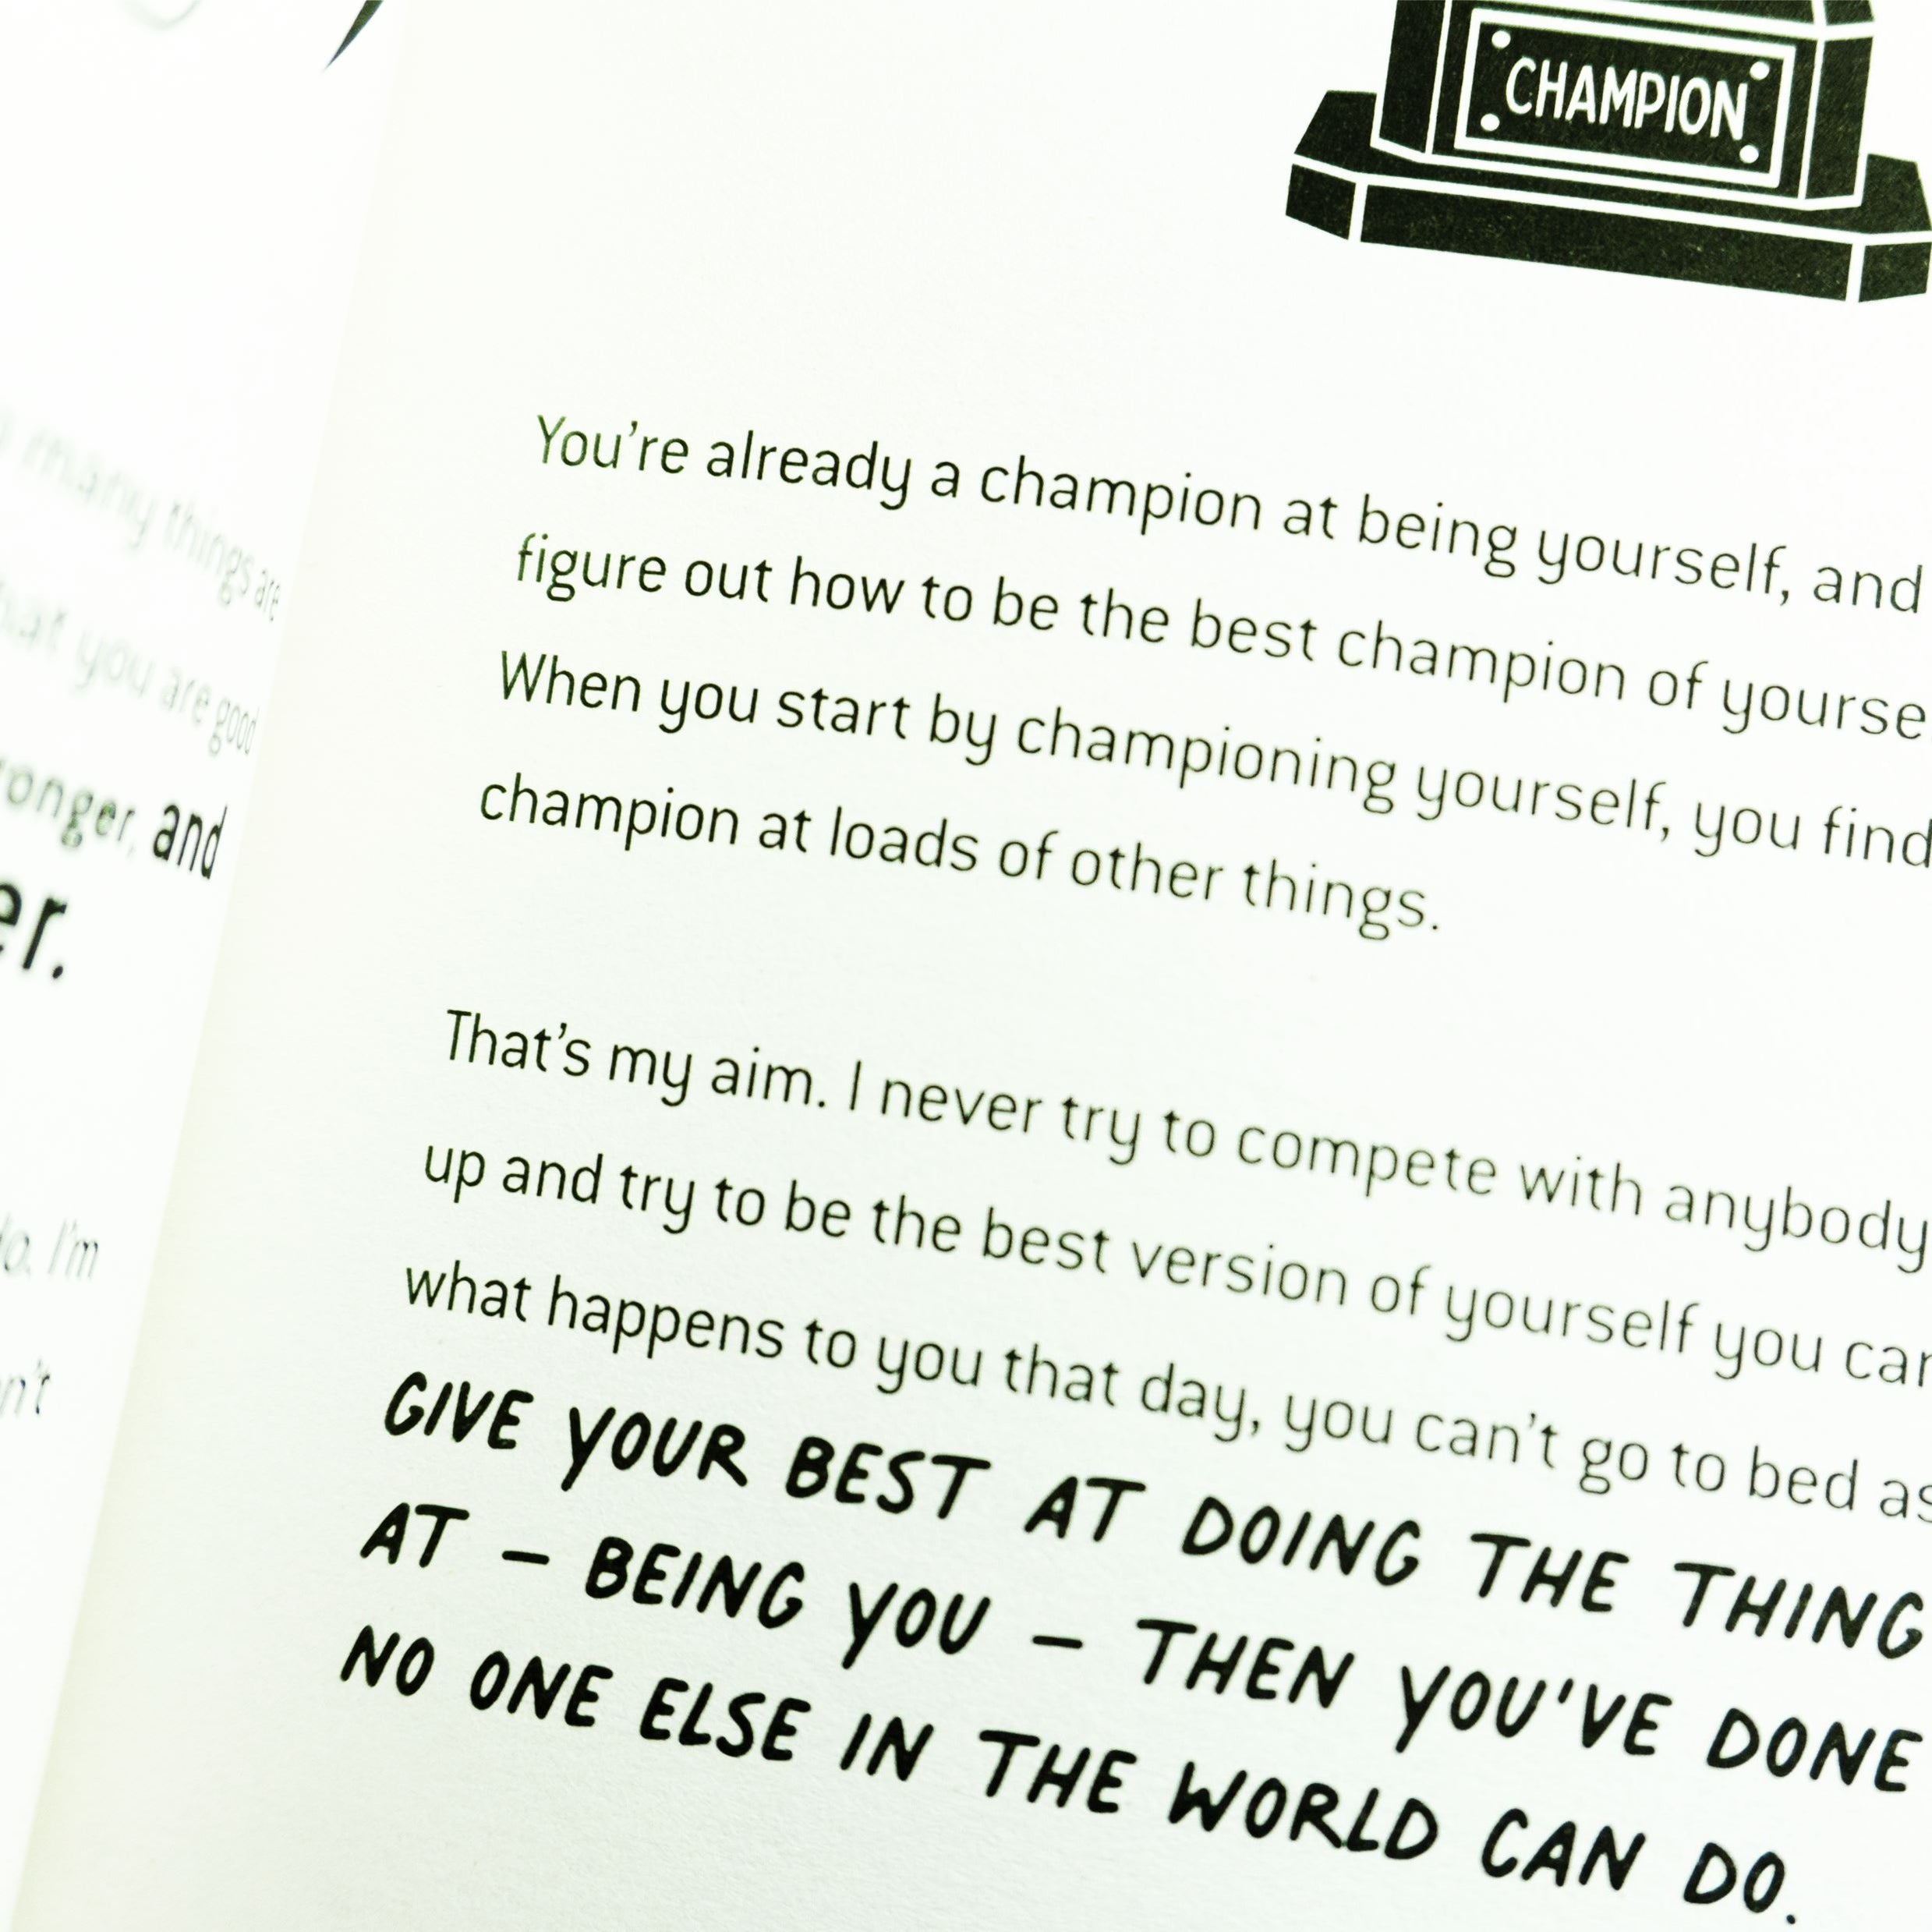 many things are
you are good
and
I'm
CHAMPION
You're already a champion at being yourself, and
figure out how to be the best champion of
When you start by championing yourself, you find
champion at loads of other things.
That's my aim. I never try to compete with anybody
up and try to be the best version of yourself you
what happens to you that day, you can't go to bed
GIVE YOUR BEST AT DOING THE THING
AT – BEING YOU – THEN YOU'VE DONE
NO ONE ELSE IN THE WORLD CAN DO.